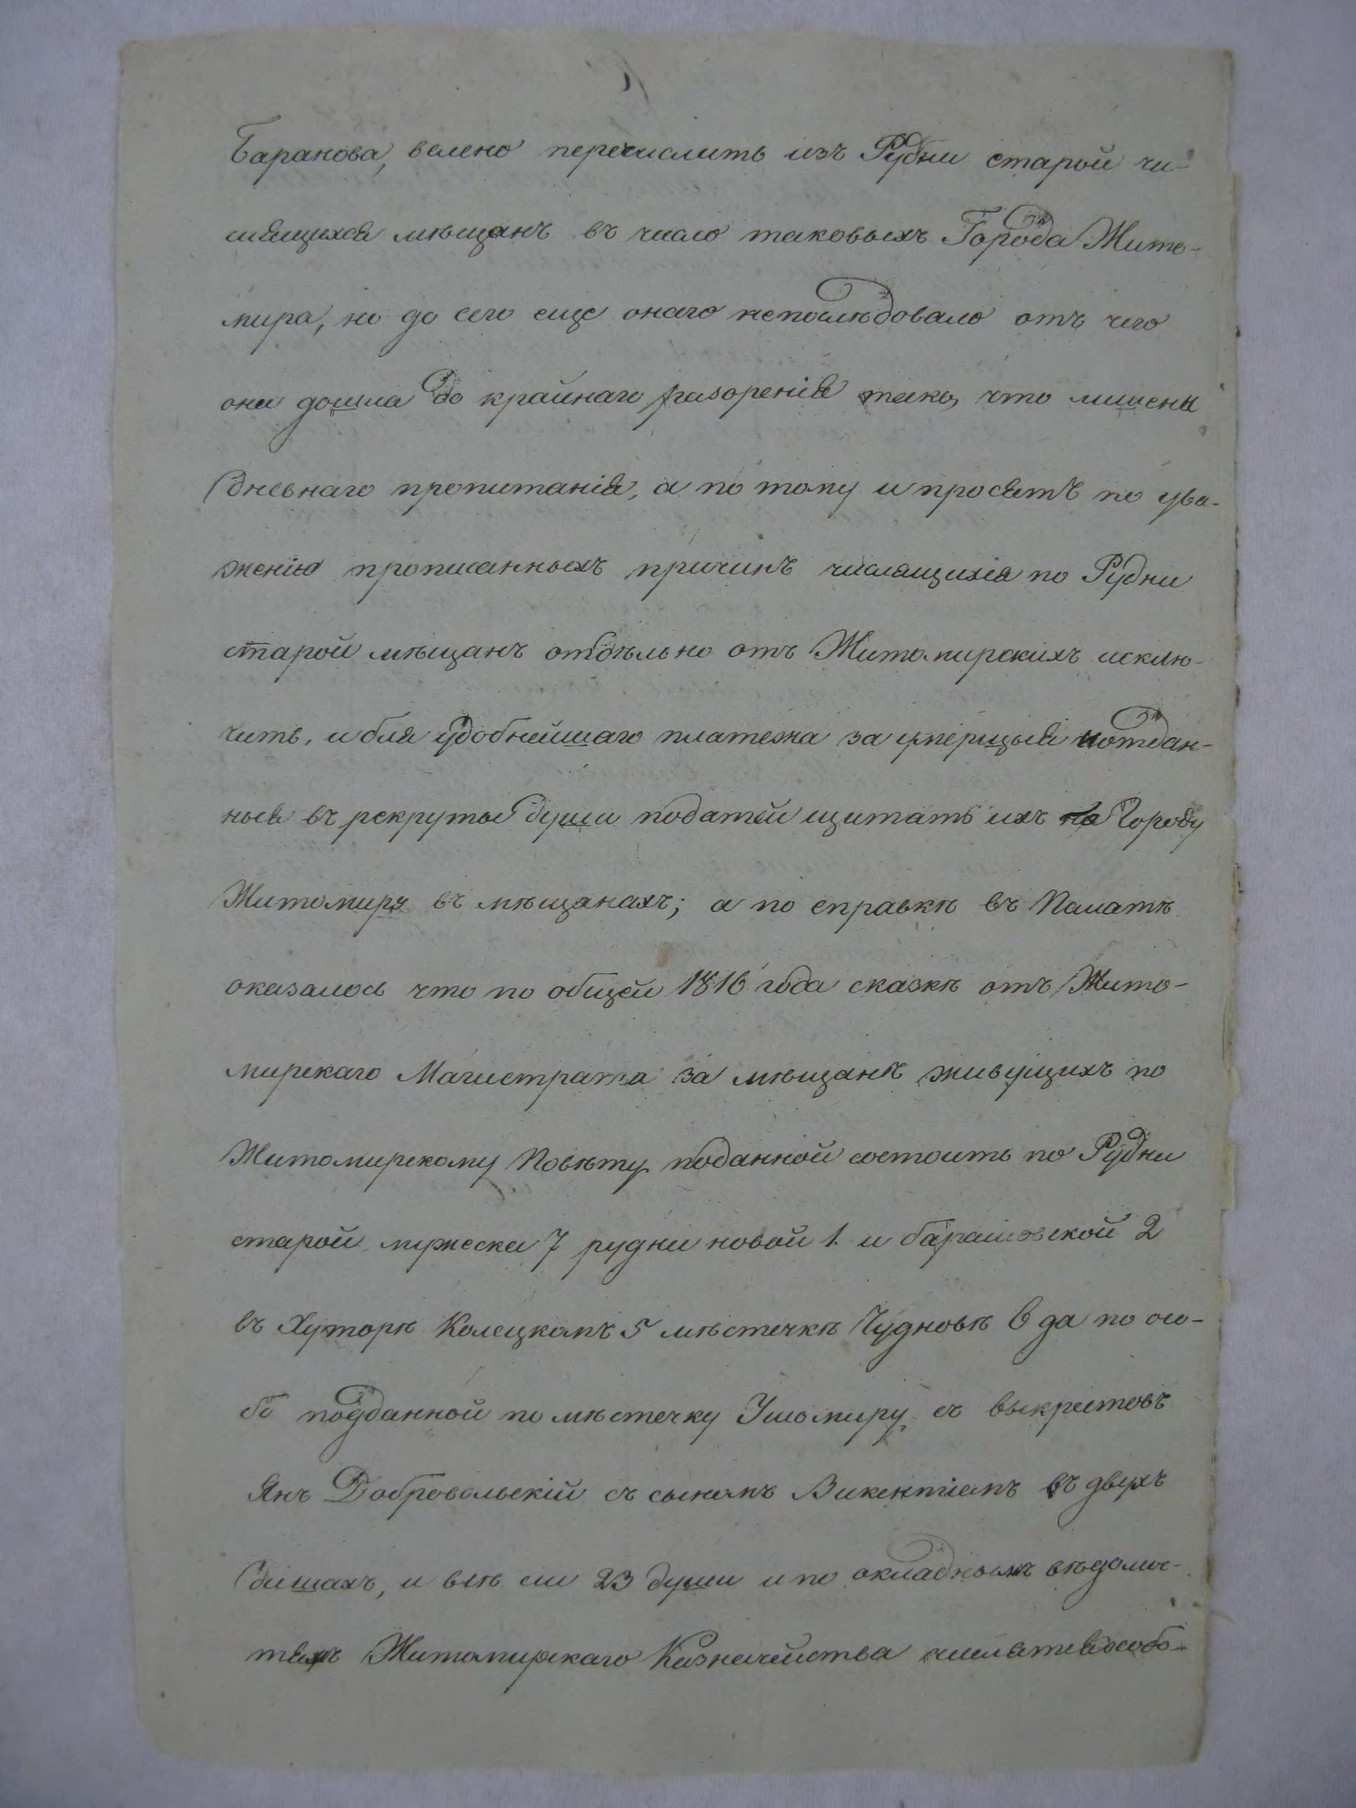 Баранова, велено перечислить изъ Рудни старой чи-
слящихся мѣщанъ въ число таковыхъ Города Жито-
мира, но до сего еще онаго непослѣдовало отъ чего
они дошли до крайнаго разоренія такъ, что лишены
дневнаго пропитанія, а по тому и просятъ по ува-
женію прописанныхъ причинъ числящихся по Рудни
старой мѣщанъ отдѣльно отъ Житомирскихъ исклю-
чить, и для удобнейшаго платежа за умершыя и отдан-
ныя въ рекруты души податей щитать ихъ по Городу
Житомиру въ мѣщанахъ; а по справкѣ въ Палатѣ
оказалось что по общей 1816 года сказкѣ отъ Жито-
мирскаго Магистрата за мѣщанъ живущихъ по
Житомирскому Повѣту поданной состоитъ по Рудни
старой мужеска 7 рудни новой 1. и барашовской 2
въ Хуторѣ Колецкомъ 5 мѣстечкѣ Чудновѣ 6 да по осо-
бо подданной по мѣстечку Ушомиру съ выкрестовъ
Янъ Добровольскій съ сыномъ Викентіемъ въ двухъ
душахъ, и всѣ сіи 23 души и по окладнымъ вѣдомос-
тямъ Житомирскаго Казначейства числятся особо-